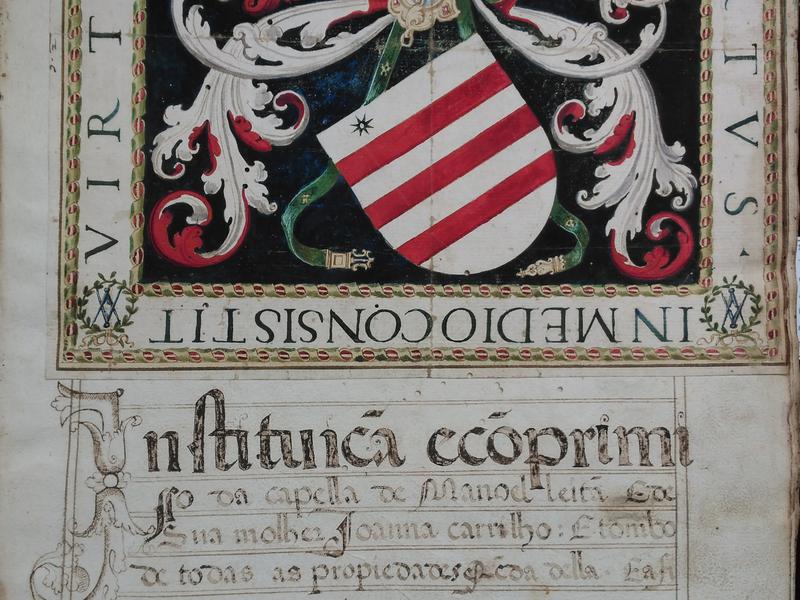 VIRT
TVS·
IN MEDIO CONSISTIT
Instituicã ecõprimi
sso da capella de Manoel leitã Ede
Sua molher Joanna carrilho: E tombo
de todas as propiedades della. Easi